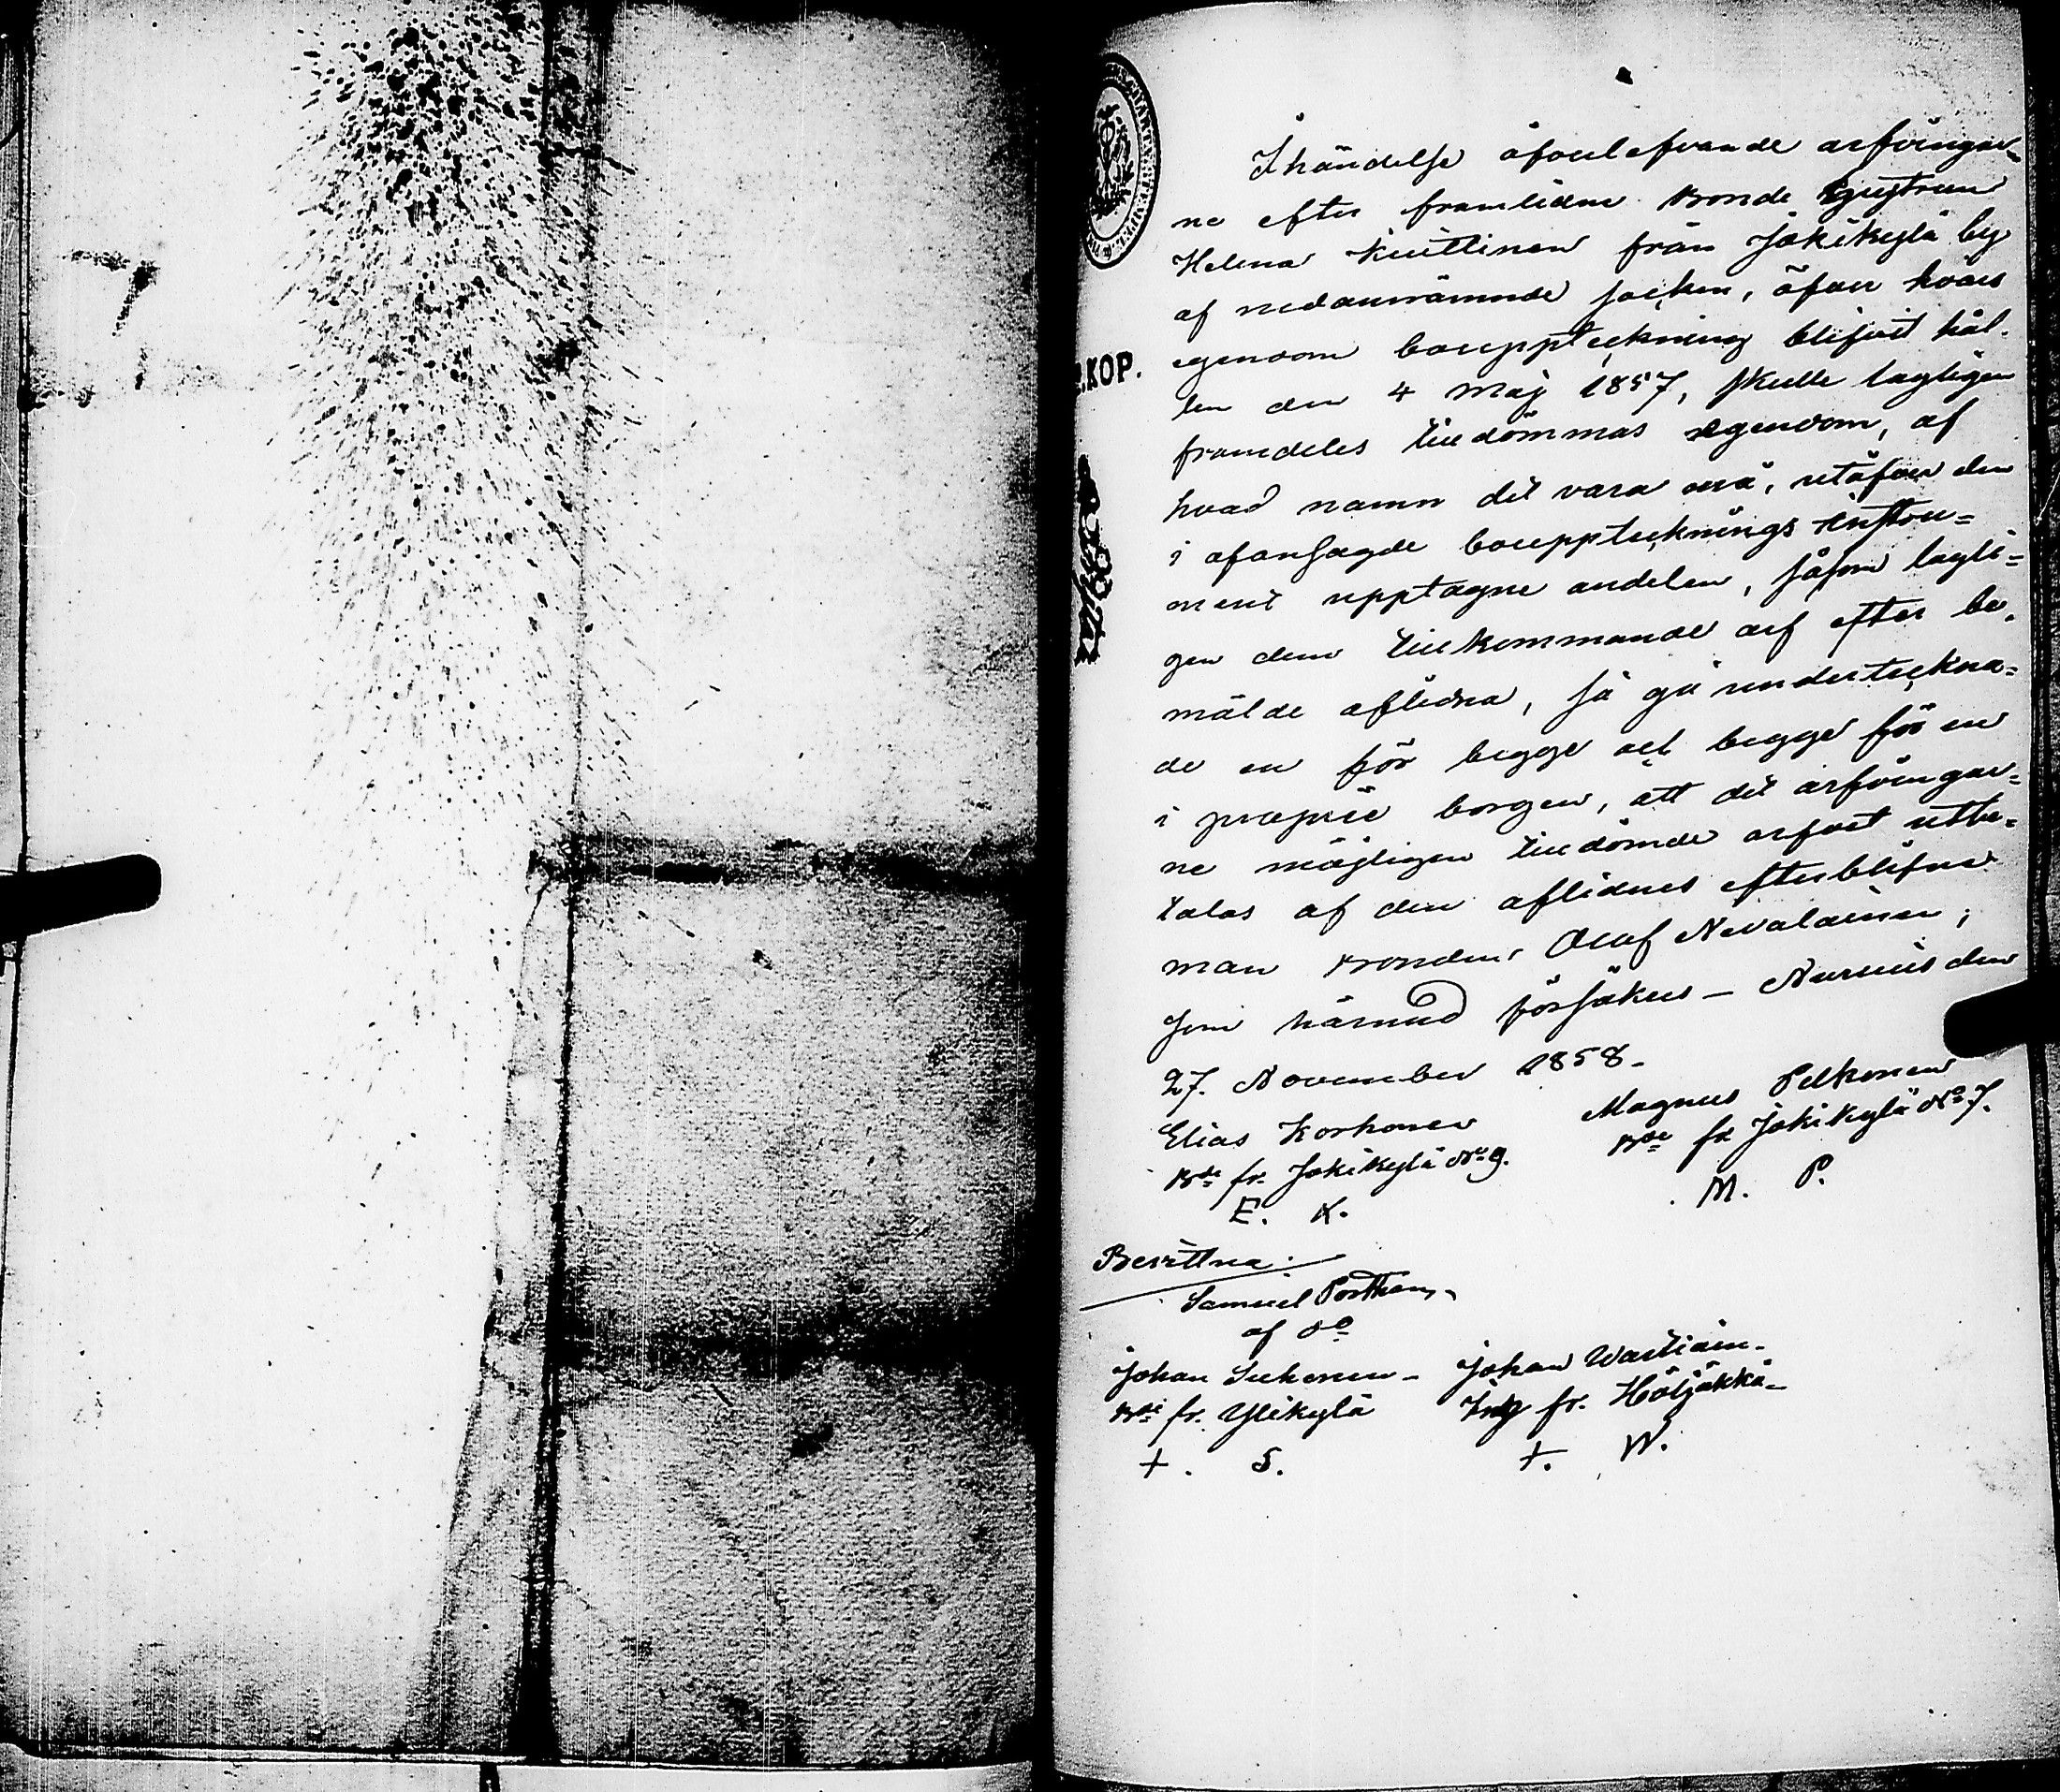 I händelse öfverlefvande arfvingar-
ne efter framlidne Bonde hustrun
Helena Kuittinen från Jokikylä by
af nedannämnde socken, öfver hvars
egendom bouppteckning blifvit hål-
len den 4 Maj 1857, skulle lagligen
framdeles tilldömmas egendom, af
hvad namn det vara må, utöfver den
i ofansagde bouppteckningsinstru=
ment upptagne andelen, såsom lagli=
gen dem tillkommande arf efter be-
mälde aflidna, så gå underteckna=
de en för begge och begge för en
i proprie borgen, att det arfvingar=
ne möjligen tilldömde arfvet utbe=
talas af den aflidnes efterblifne
man Bonden Olof Nevalainen,
som härmed försäkras — Nurmis den
27. November 1858.
Elias Korhonen Magnus Pelkonen
Bde fr. Jokikylä No 9. Bde fr Jokikylä No 7.
E. K. M. P.
Bevittna:
Samuel Porthan,
af do
Johan Suhonen - Johan Wartiain-
Bde fr. Ylikylä Inh fr. Höljäkkä-
+ . S. +. W.
.KOP.